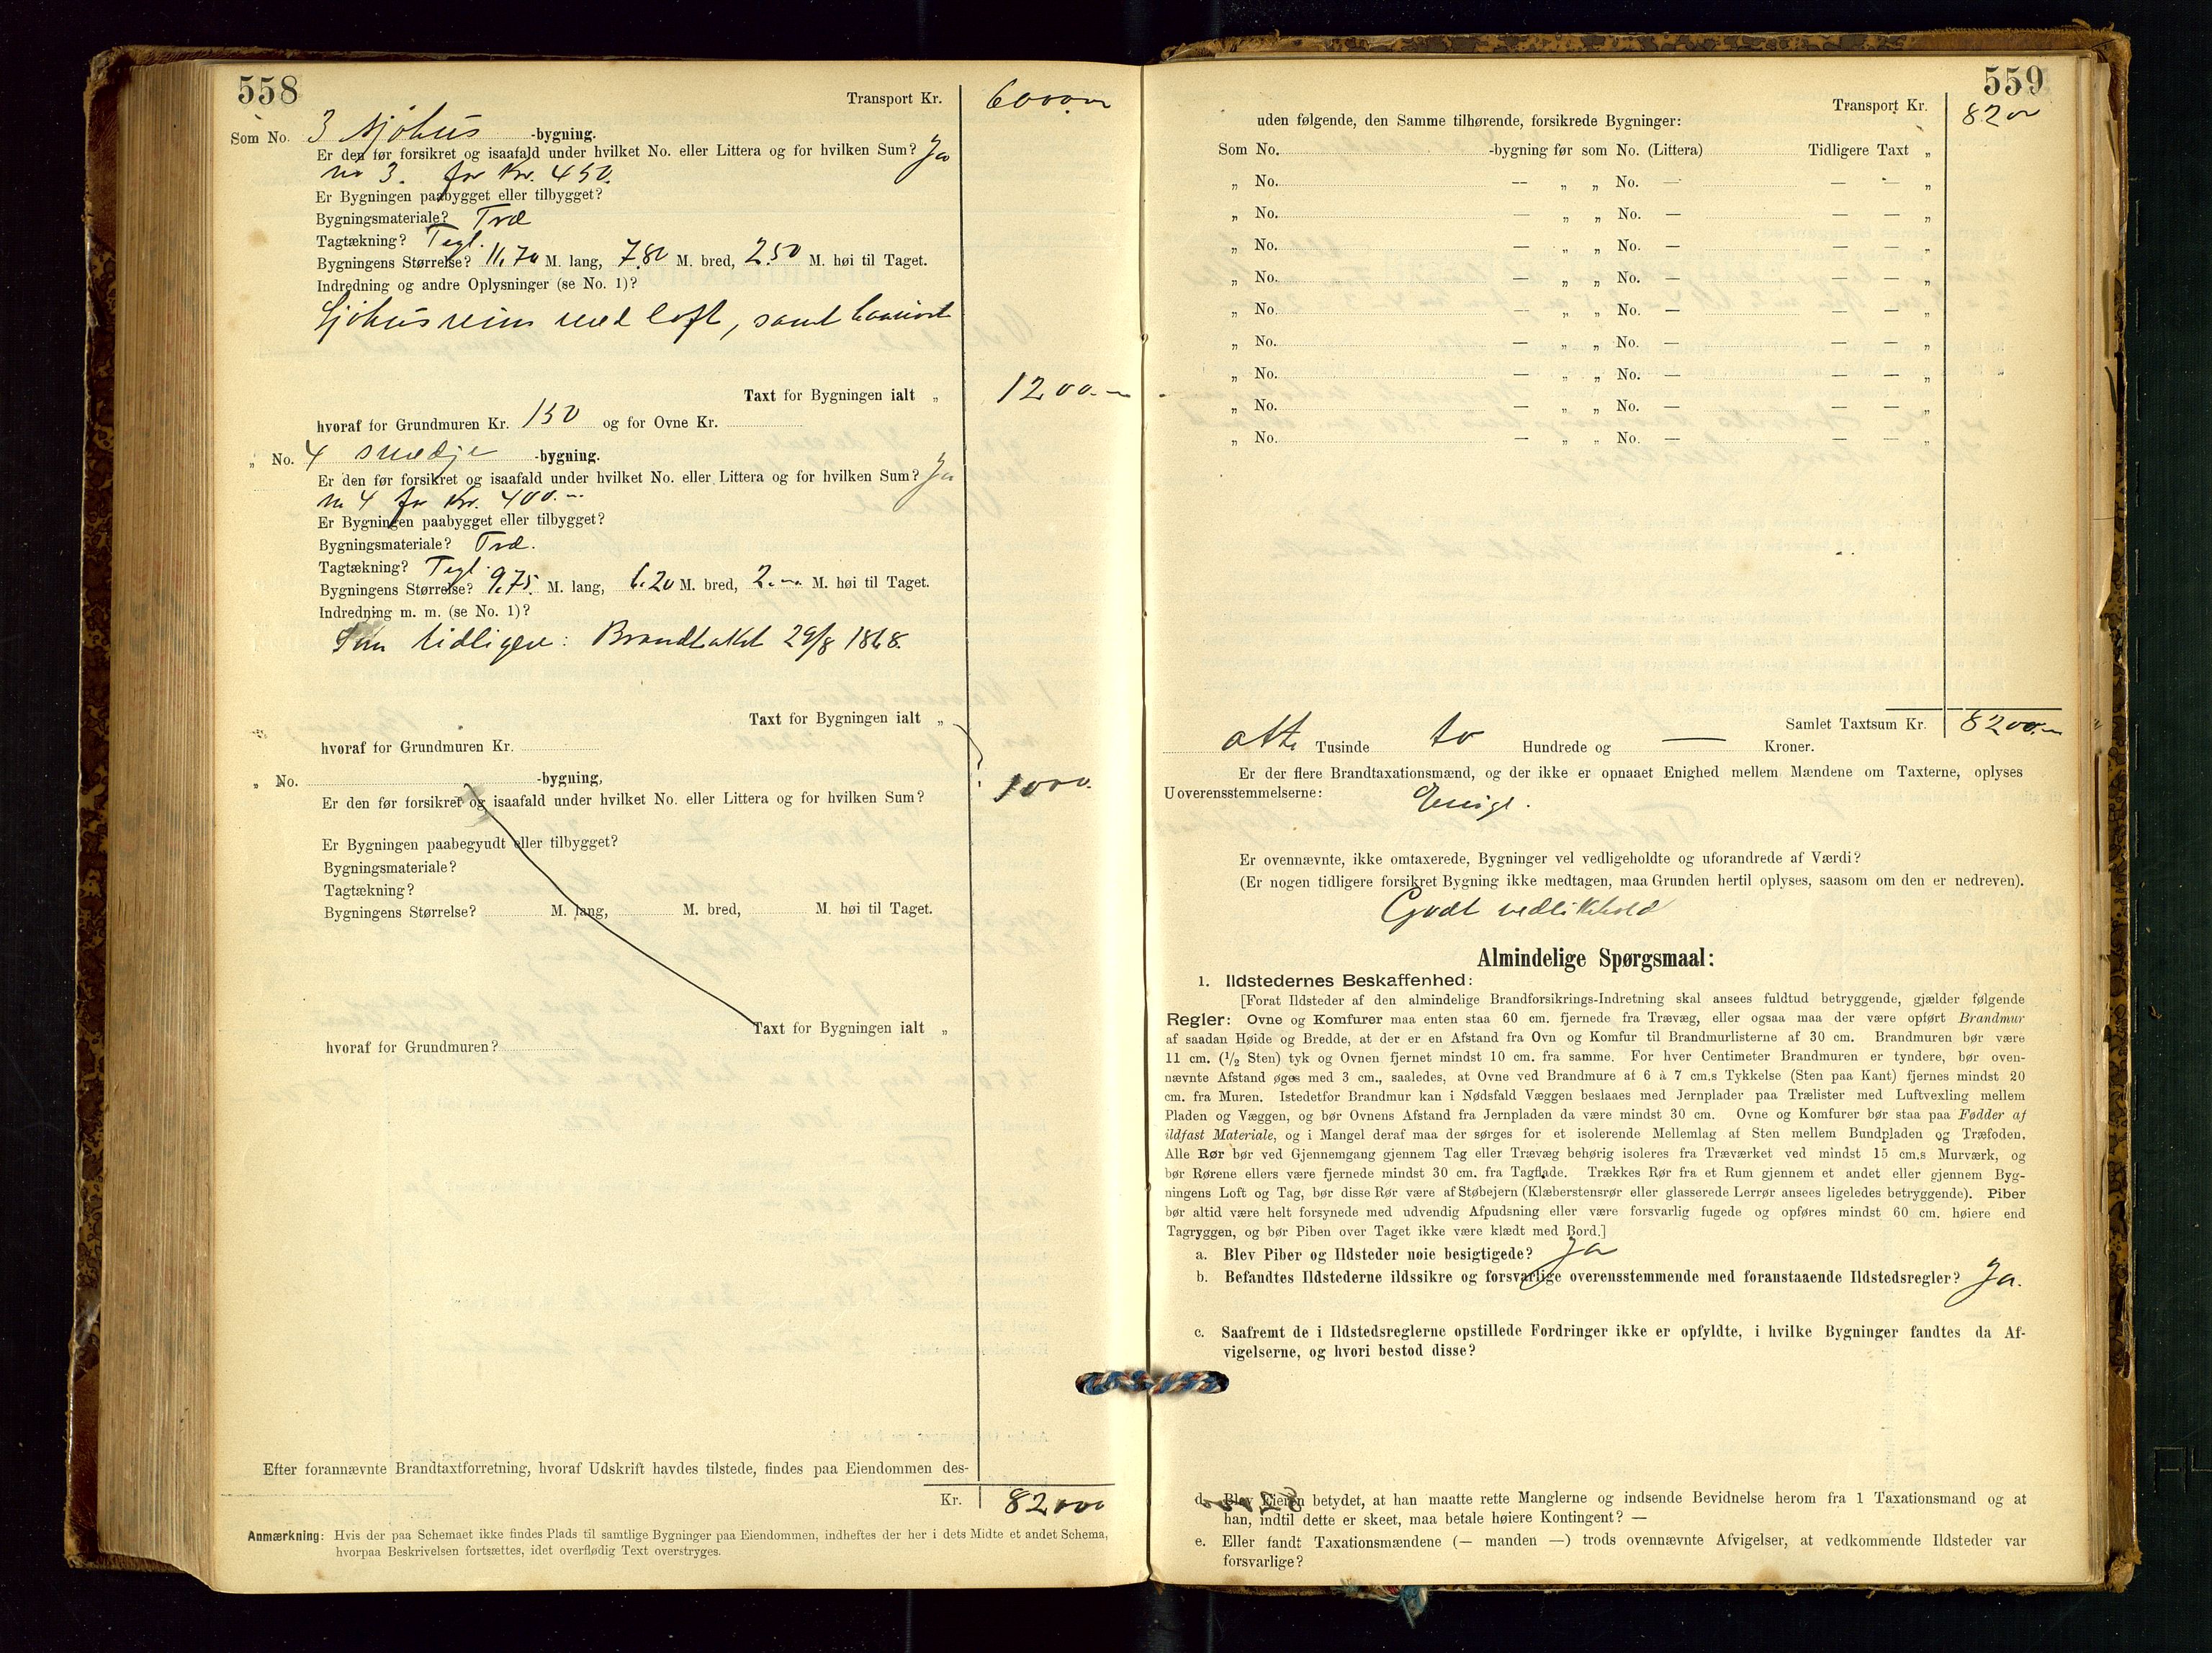 558
Transport Kr. 6000.00
Som No. 3 sjøhus -bygning.
Er den før forsikret og isaafald under hvilket No. eller Littera og for hvilken Sum? Ja
no 3. for Kr. 450.
Er Bygningen paabygget eller tilbygget?
Bygningsmateriale? Træ
Tagtækning? Tegl.
Bygningens Størrelse? 11.70 M. lang, 7.80 M. bred, 2.50 M. høi til Taget.
Indredning og andre Oplysninger (se No. 1)?
Sjøhusrum med loft, samt
Taxt for Bygningen ialt „ 1200.—
hvoraf for Grundmuren Kr. 150 og for Ovne Kr.
„ No. 4 smedje -bygning.
Er den før forsikret og isaafald under hvilket No. eller Littera og for hvilken Sum? Ja
no 4 for Kr. 400.—
Er Bygningen paabygget eller tilbygget?
Bygningsmateriale? Træ.
Tagtækning? Tegl.
Bygningens Størrelse? 9.75. M. lang, 6.20 M. bred, 2.— M. høi til Taget.
Indredning m. m. (se No. 1)?
Som tidligere: Brandtakst 29/8 1868.
Taxt for Bygningen ialt „
hvoraf for Grundmuren Kr.
„ No. -bygning, 1000.
Er den før forsikret og isaafald under hvilket No. eller Littera og for hvilken Sum?
Er Bygningen paabegyudt eller tilbygget?
Bygningsmateriale?
Tagtækning?
Bygningens Størrelse? M. lang, M. bred, M. høi til Taget.
Taxt for Bygningen ialt „
hvoraf for Grundmuren?
Efter forannævnte Brandtaxtforretning, hvoraf Udskrift havdes tilstede, findes paa Eiendommen des-
Kr. 8200
Anmærkning: Hvis der paa Schemaet ikke findes Plads til samtlige Bygninger paa Eiendommen, indheftes der her i dets Midte et andet Schema,
hvorpaa Beskrivelsen fortsættes, idet overflødig Text overstryges.
559
Transport Kr. 8200
uden følgende, den Samme tilhørende, forsikrede Bygninger:
Som No. -bygning før som No. (Littera) Tidligere Taxt „
„ No. — „ „ No. — — — „
„ No. — „ „ No. — — — „
„ No. — „ „ No. — — — „
„ No. — „ „ No. — — — „
„ No. — „ „ No. — — — „
„ No. — „ „ No. — — — „
„ No. — „ „ No. — — — „
„ No. — „ „ No. — — — „
„ No. — „ „ No. — — — „
Samlet Taxtsum Kr. 8200.—
otte Tusinde to Hundrede og — Kroner.
Er der flere Brandtaxationsmænd, og der ikke er opnaaet Enighed mellem Mændene om Taxterne, oplyses
Uoverensstemmelserne: Enige.
Er ovennævnte, ikke omtaxerede, Bygninger vel vedligeholdte og uforandrede af Værdi?
(Er nogen tidligere forsikret Bygning ikke medtagen, maa Grunden hertil oplyses, saasom om den er nedreven).
Godt vedlikehold
Almindelige Spørgsmaal:
1. Ildstedernes Beskaffenhed:
[Forat Ildsteder af den almindelige Brandforsikrings-Indretning skal ansees fuldtud betryggende, gjælder følgende
Regler: Ovne og Komfurer maa enten staa 60 cm. fjernede fra Trævæg, eller ogsaa maa der være opført Brandmur
af saadan Høide og Bredde, at der er en Afstand fra Ovn og Komfur til Brandmurlisterne af 30 cm. Brandmuren bør være
11 cm. (1/2 Sten) tyk og Ovnen fjernet mindst 10 cm. fra samme. For hver Centimeter Brandmuren er tyndere, bør oven-
nævnte Afstand øges med 3 cm., saaledes, at Ovne ved Brandmure af 6 à 7 cm.s Tykkelse (Sten paa Kant) fjernes mindst 20
cm. fra Muren. Istedetfor Brandmur kan i Nødsfald Væggen beslaaes med Jernplader paa Trælister med Luftvexling mellem
Pladen og Væggen, og bør Ovnens Afstand fra Jernpladen da være mindst 30 cm. Ovne og Komfurer bør staa paa Fødder af
ildfast Materiale, og i Mangel deraf maa der sørges for et isolerende Mellemlag af Sten mellem Bundpladen og Træfoden.
Alle Rør bør ved Gjennemgang gjennem Tag eller Trævæg behørig isoleres fra Træværket ved mindst 15 cm.s Murværk, og
bør Rørene ellers være fjernede mindst 30 cm. fra Tagflade. Trækkes Rør fra et Rum gjennem et andet eller gjennem Byg-
ningens Loft og Tag, bør disse Rør være af Støbejern (Klæberstensrør eller glasserede Lerrør ansees ligeledes betryggende). Piber
bør altid være helt forsynede med udvendig Afpudsning eller være forsvarlig fugede og opføres mindst 60 cm. høiere end
Tagryggen, og bør Piben over Taget ikke være klædt med Bord.]
a. Blev Piber og Ildsteder nøie besigtigede? Ja
b. Befandtes Ildstederne ildssikre og forsvarlige overensstemmende med foranstaaende Ildstedsregler? Ja.
c. Saafremt de i Ildstedsreglerne opstillede Fordringer ikke er opfyldte, i hvilke Bygninger fandtes da Af-
vigelserne, og hvori bestod disse?
d. Blev Eieren betydet, at han maatte rette Manglerne og indsende Bevidnelse herom fra 1 Taxationsmand og at
han, indtil dette er skeet, maa betale høiere Kontingent? —
e. Eller fandt Taxationsmændene (— manden —) trods ovennævnte Afvigelser, at vedkommende Ildsteder var
forsvarlige?